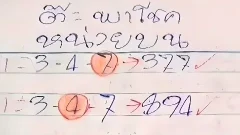 ต๊ะ พาโชค
หน่วยบน
1 = 3-4-7→377✓
1 = 3-4-7→894✓